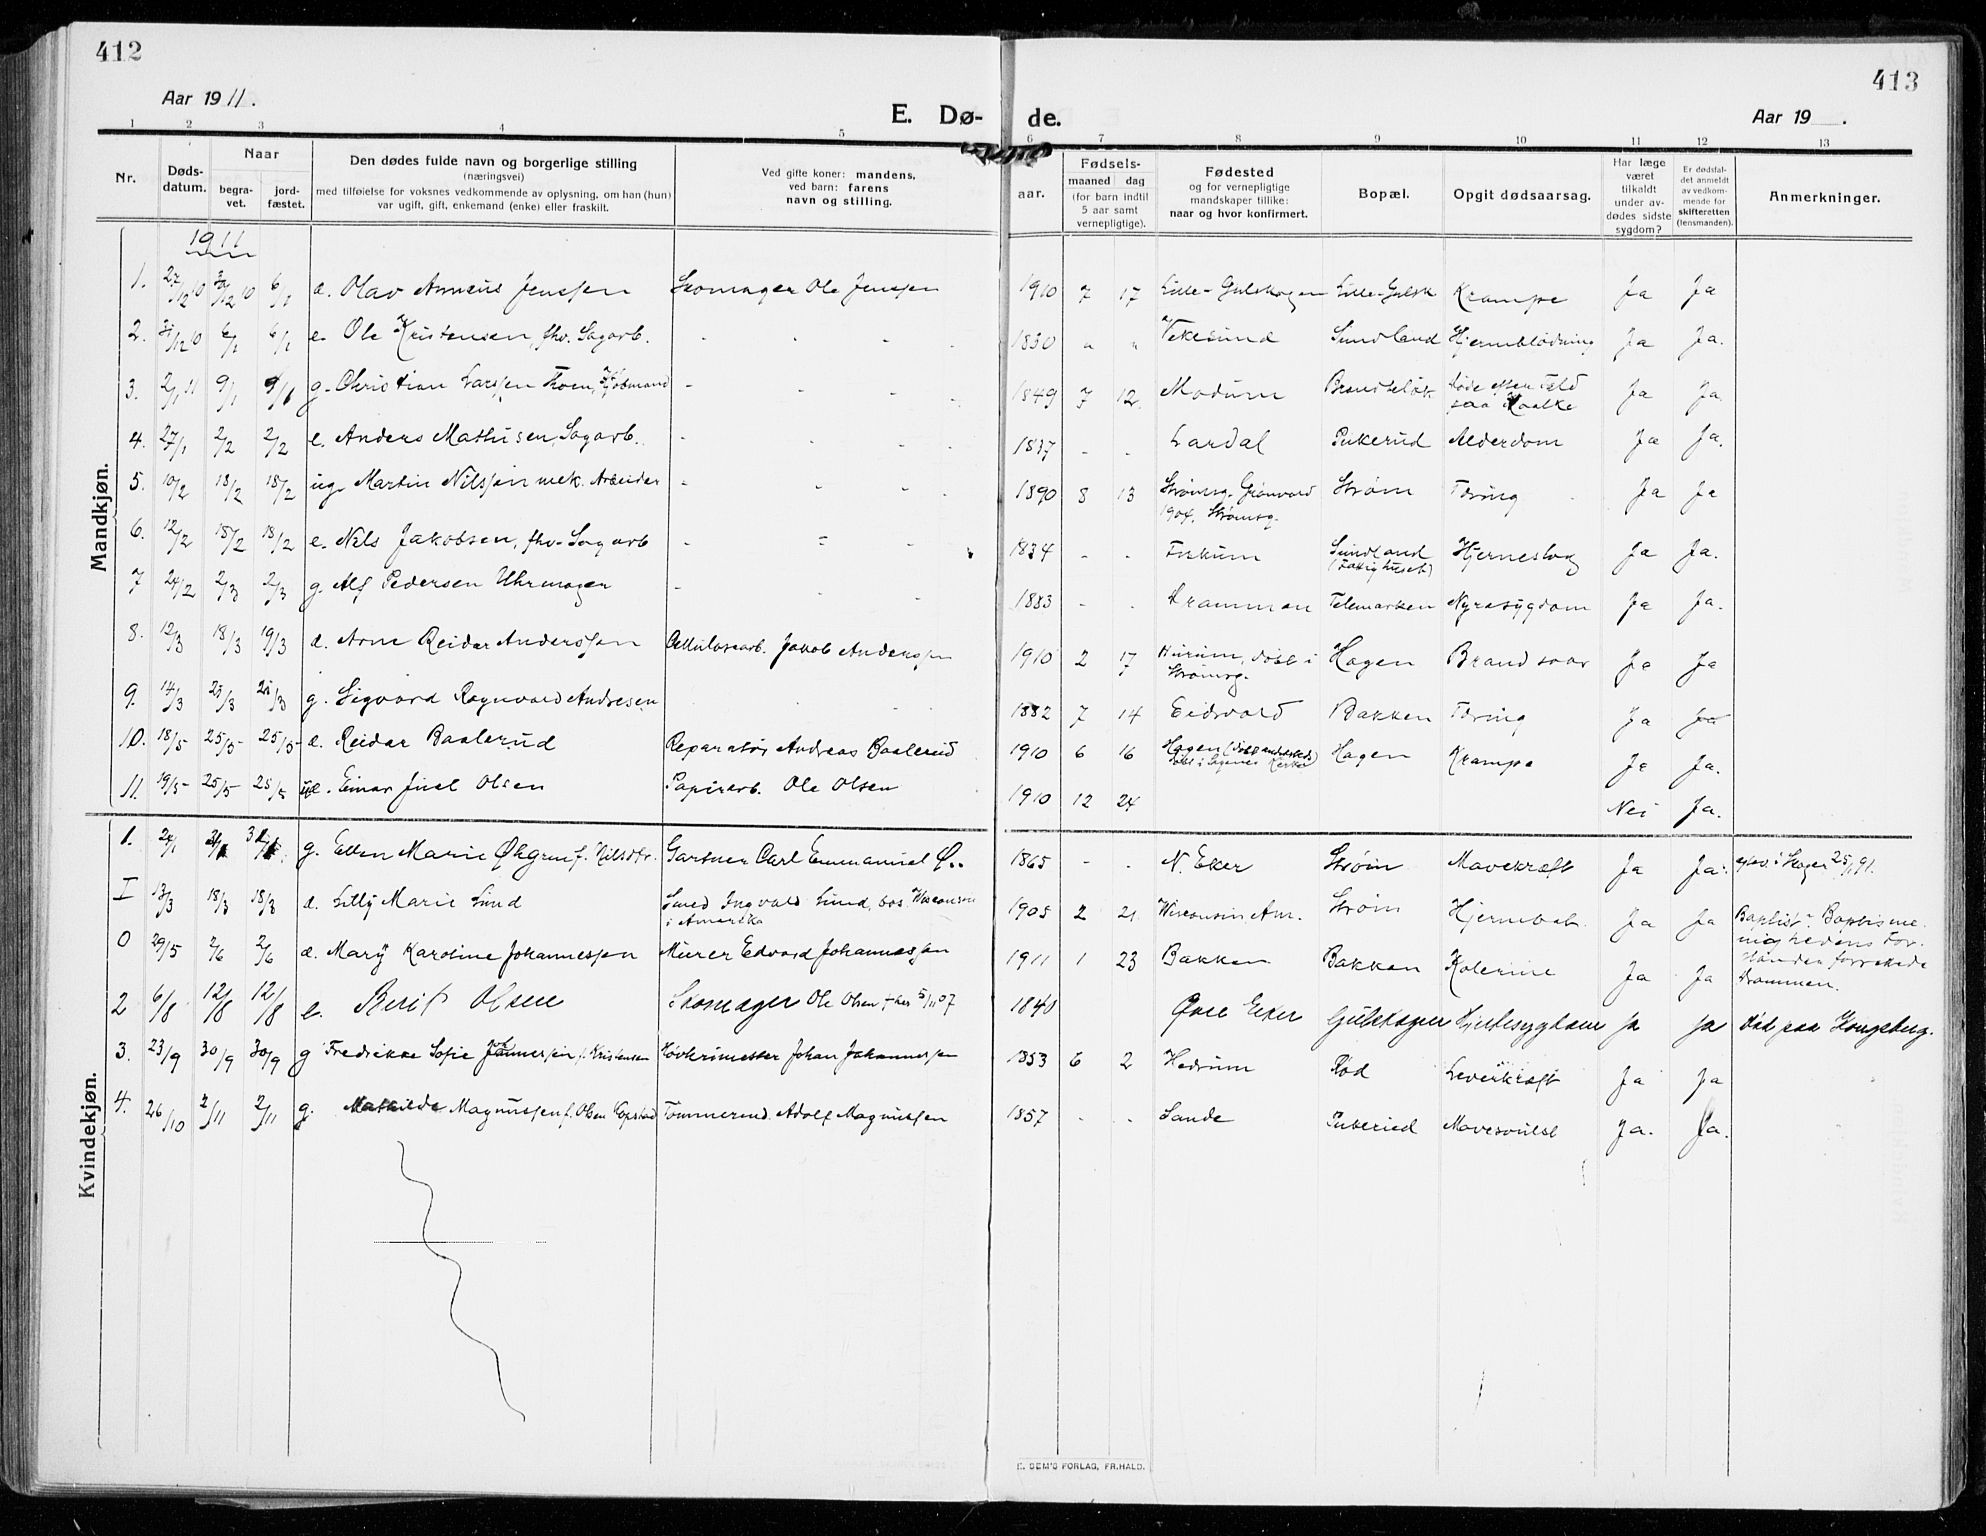 412
413
Aar 19 11.
E. Dø-
de.
Aar 19
1 2 3 4 5 6 7 8 9 10 11 12 13
Nr.
Døds-
datum.
Naar
begra-
vet.
jord-
fæstet.
Den dødes fulde navn og borgerlige stilling
(næringsvei)
med tilføielse for voksnes vedkommende av oplysning, om han (hun)
var ugift, gift, enkemand (enke) eller fraskilt.
Ved gifte koner: mandens,
ved barn: farens
navn og stilling.
aar.
Fødsels-
maaned dag
(for barn indtil
5 aar samt
vernepligtige).
Fødested
og for vernepligtige
mandskaper tillike:
naar og hvor konfirmert.
Bopæl.
Opgit dødsaarsag.
Har læge
været
tilkaldt
under av-
dødes sidste
sygdom?
Er dødsfal-
det anmeldt
av vedkom-
mende for
skifteretten
(lensmanden).
Anmerkninger.
Mandkjøn.
1911
1. 27/12 10 30/12 10 6/1 Olav Anneus Jenssen Skomager Ole Jenssen 1910 7 17 Lille-Gulskogen Lille-Gulsk Krampe Ja Ja
2. 31/12 10 6/1 6/1 e. Ole Kristensen, fhv. Sagarb. 1830 " " Vekesund Sundland Hjerneblødning Ja Ja.
3. 2/1 11 9/1 g. Christian Larssen Toen, Kjøbmand 1849 7 12 Modum Ja Ja.
4. 27/1 2/2 2/2 e. Anders Mathisen, Sagarb. 1837 - - Lardal Pukerud Alderdom Ja Ja.
5. 10/2 18/2 18/2 ug. Martin Nilssen mek. Arbeider 1890 8 13 Strømsg. Grønvold Strøm Tæring Ja Ja
1904, Strømsg.
6. 12/2 18/2 18/2 e. Nils Jakobsen, fhv. Sagarb 1834 - - Fiskum Sundland Hjerneslag Ja Ja.
(Fattighuset)
7 24/2 2/3 2/3 g. Alf Pedersen Uhrmager 1883 - - Drammen Telemarken Nyresygdom Ja Ja.
8. 12/3 18/3 19/3 Arne Reidar Anderssen Cellulosearb. Jakob Anderssen 1910 2 17 Hurum, døbt i Hagen Brandsaar Ja Ja
Strømsg.
9. 14/3 21/3 21/3 g. Sigvard Ragnvard Andresen 1882 7 14 Eidsvold Bakken Tæring Ja Ja
10. 18/5 25/5 25/5 Reidar Baalerud Reparatør Andreas Baalerud 1910 6 16 Hagen Hagen Krampe Ja Ja.
11. 19/5 25/5 25/5 Einar Juel Olsen Papirarb. Ole Olsen 1910 12 24 Nei Ja.
Kvindekjøn.
1. 24/1 g. Ellen Marie Øhgren f. Nilsdtr. Gartner Carl Emmanuel Ø.. 1865 - - N. Eker Strøm Mavekræft Ja Ja. i Skoger 25/1 91.
I 13/3 18/3 18/3 Lilly Marie Lund Smed Ingvald Lund, bos. Wisconsin 1905 2 21 Wisconsin, Am. Strøm Hjernebet. Ja Ja Baptist. Baptistme
i Amerika
nighedens For-
O 29/5 2/6 2/6 Mary Karoline Johannessen Murer Edvard Johannessen 1911 1 23 Bakken Bakken Kolerine Ja Ja
Drammen.
2 6/8 12/8 12/8 e. Berit Olsen Skomager Ole Olsen 5/11 07 1840 Øvre Eker Gulskogen Hjertesygdom Ja Ja død paa Kongsberg.
3. 23/9 30/9 30/9 g Fredrikke Sofie Johannessen f. Kristensen Høvlerimester Johan Johannessen 1853 6 2 Hedrum Rød Leverkræft Ja Ja
4. 26/10 2/11 2/11 g. Mathilde Magnussen f. Olsen Kopstad Tømmermd. Adolf Magnussen 1857 - - Sande Pukerud Mavesvulst Ja. Ja.
E. SEM'S FORLAG, FR.HALD.